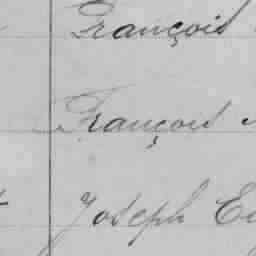 François
François
Joseph